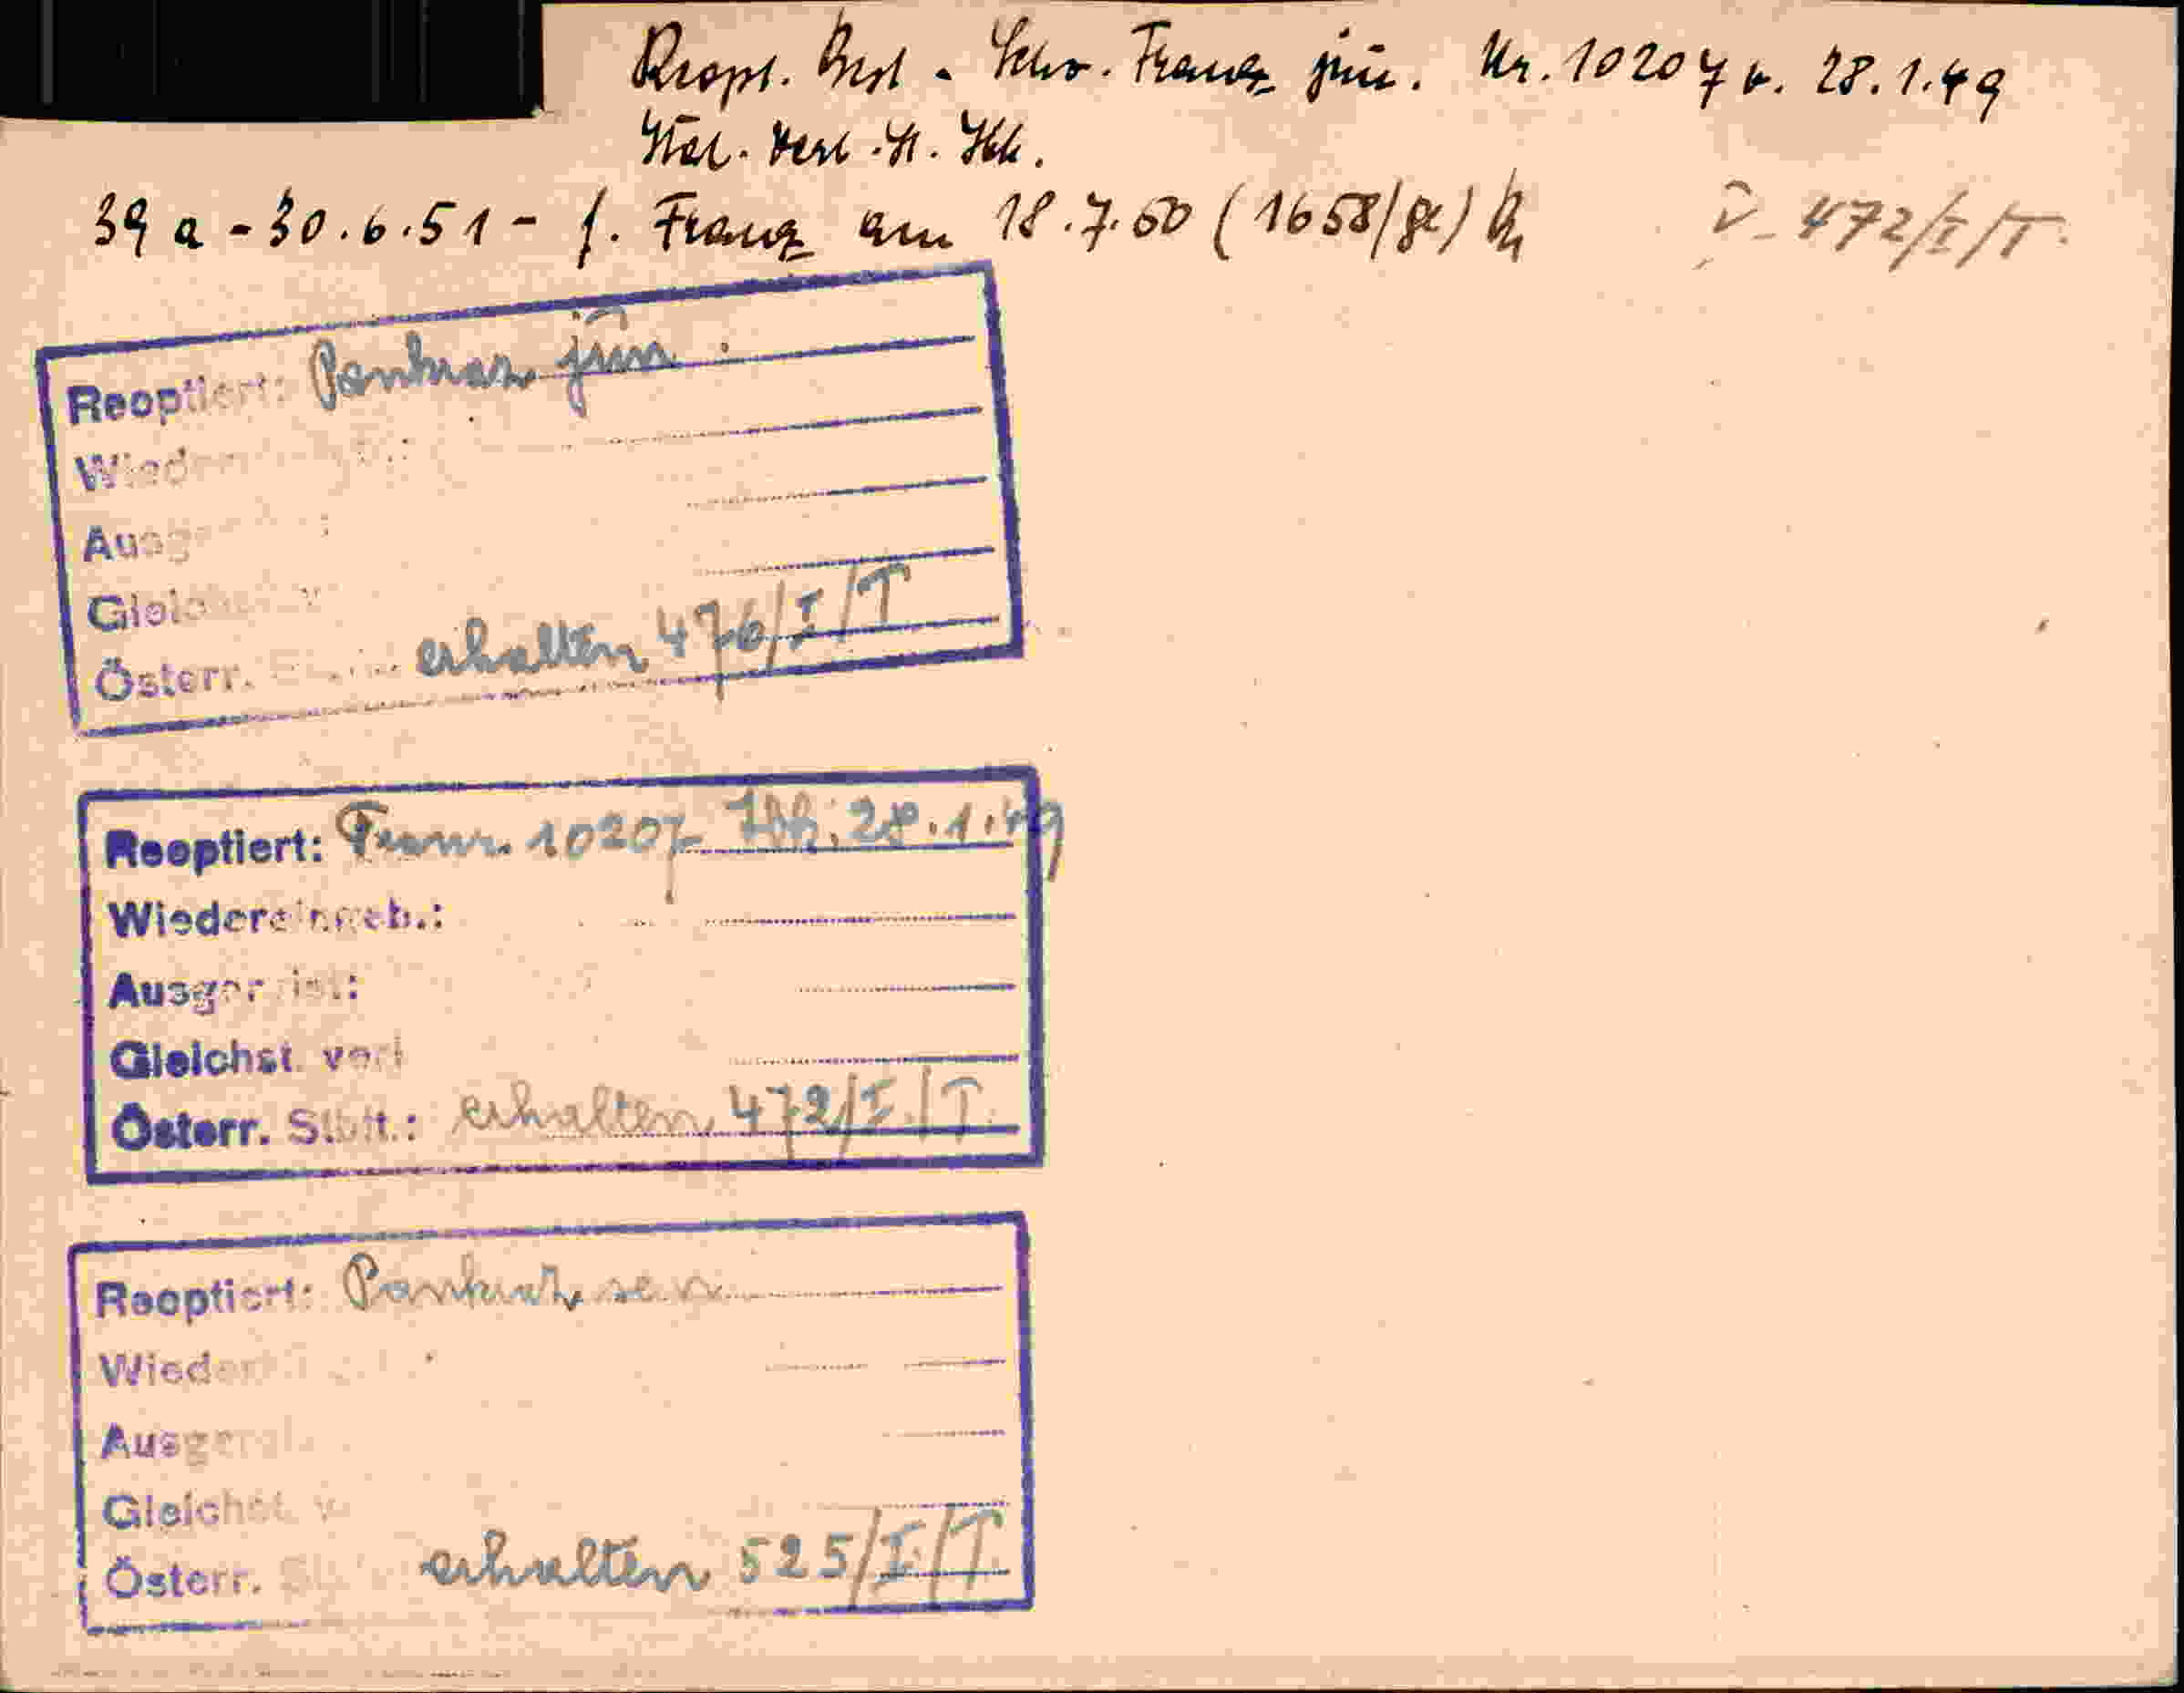 Reopt. Best. Schw. Franz jun. Nr. 10207 v. 28.1.49
Ital. Verb. St. Ibk.
39 a - 30.6.51 - f. Franz am 18.7.50 (1658/ge)
472/I/T.
Reoptiert: Pankraz jun.
Wieder
Ausge
Gleich
Österr. erhalten 476/I/T
Reoptiert: Franz. 10207 Ibk. 28.1.49
Wiedereinreb.:
Ausgereist:
Gleichst. verl
Österr. Stbt.: erhalten 472/I/T.
Reoptiert: Pankraz sen.
Wieder
Ausgerei
Gleichst. v
Österr. St erhalten 525/I/T.